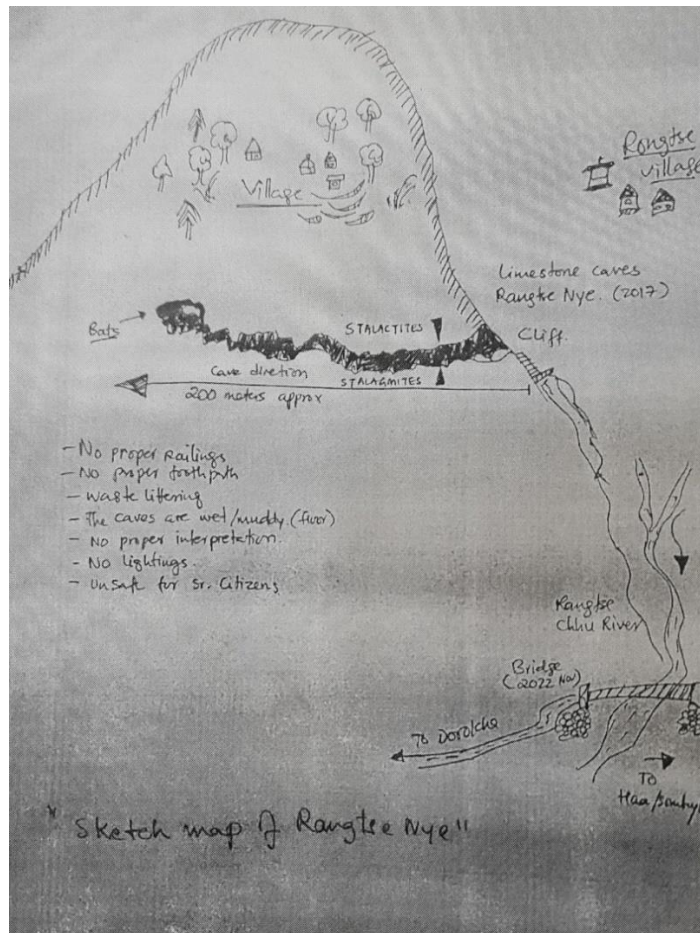 Rongtse
village
Village
Limestone caves
Rangtse Nye. (2017)
Cliff.
Bats
STALACTITES
Cave direction
STALAGMITES
200 meters approx
- No proper railings
- No proper footpath
- waste littering
- The caves are wet/muddy (floor)
- No proper interpretation.
- No lightings.
- Unsafe for Sr. Citizens
Rangtse
Chhu River
Bridge
(2022 Nov)
To Dorokha
To
Haa/
"Sketch map of Rangtse Nye"